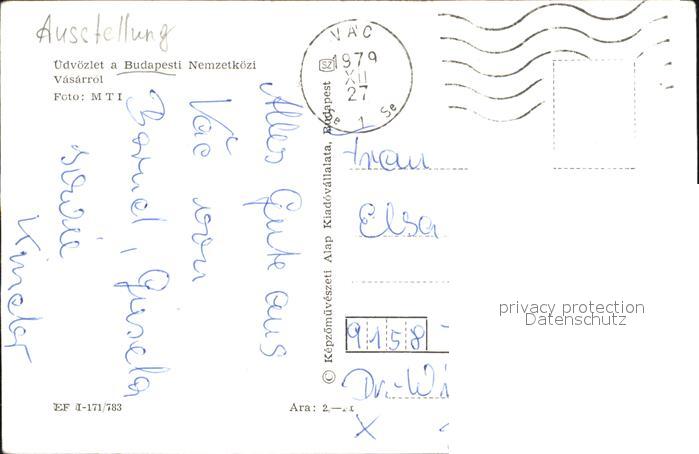 Ausstellung
Üdvözlet a Budapesti Nemzetközi
Vásárról
Foto: MTI
Alles Gute aus
Vác von
Bernd, Gisela
sowie
Kinder
EF II-171/783
Ara: 2,—Ft
© Képzőművészeti Alap Kiadóvállalata, Budapest
VÁC
SZ 1979
XII
27
1
Frau
Elsa
9158
Dr.-Wi
X
privacy protection
Datenschutz